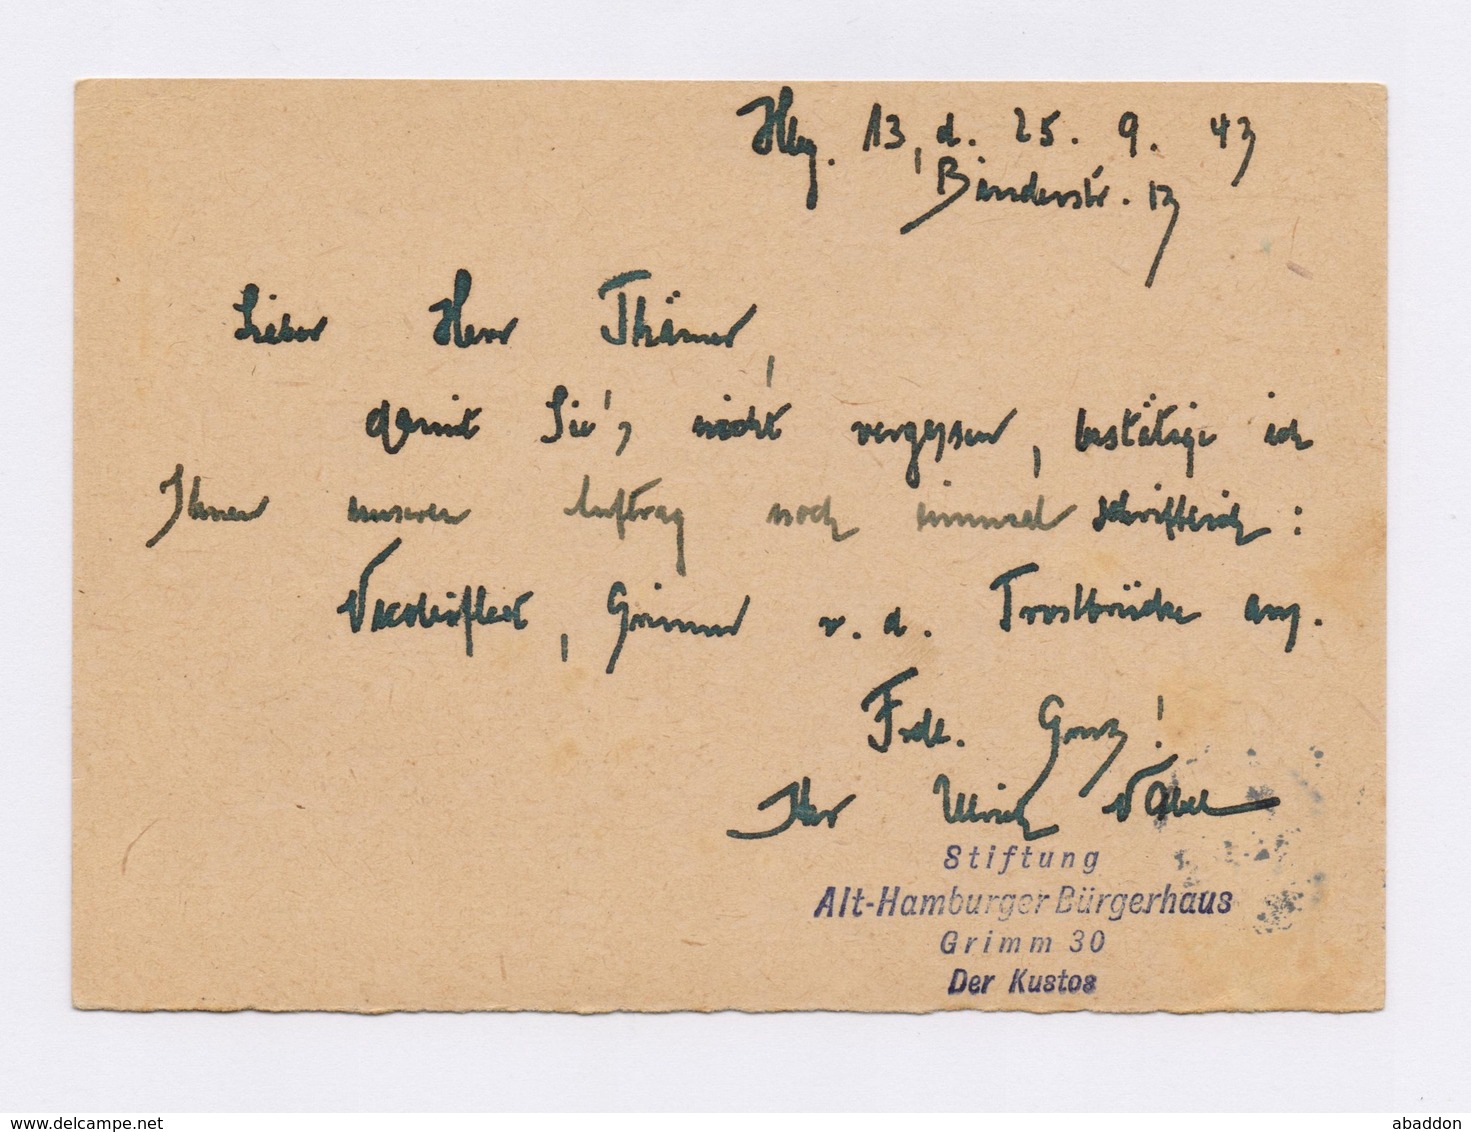 Hbg. 13, d. 25. 9. 43
Binderstr. 13
Lieber Herr Thämer,
damit Sie's nicht vergessen, bestätige ich
Ihnen unseren Auftrag noch einmal schriftlich:
Nikoleifleet, Grimm v. d. Trostbrücke aus.
Frdl. Gruß!
Ihr Ulrich Nabel
Stiftung
Alt-Hamburger Bürgerhaus
Grimm 30
Der Kustos
abaddon